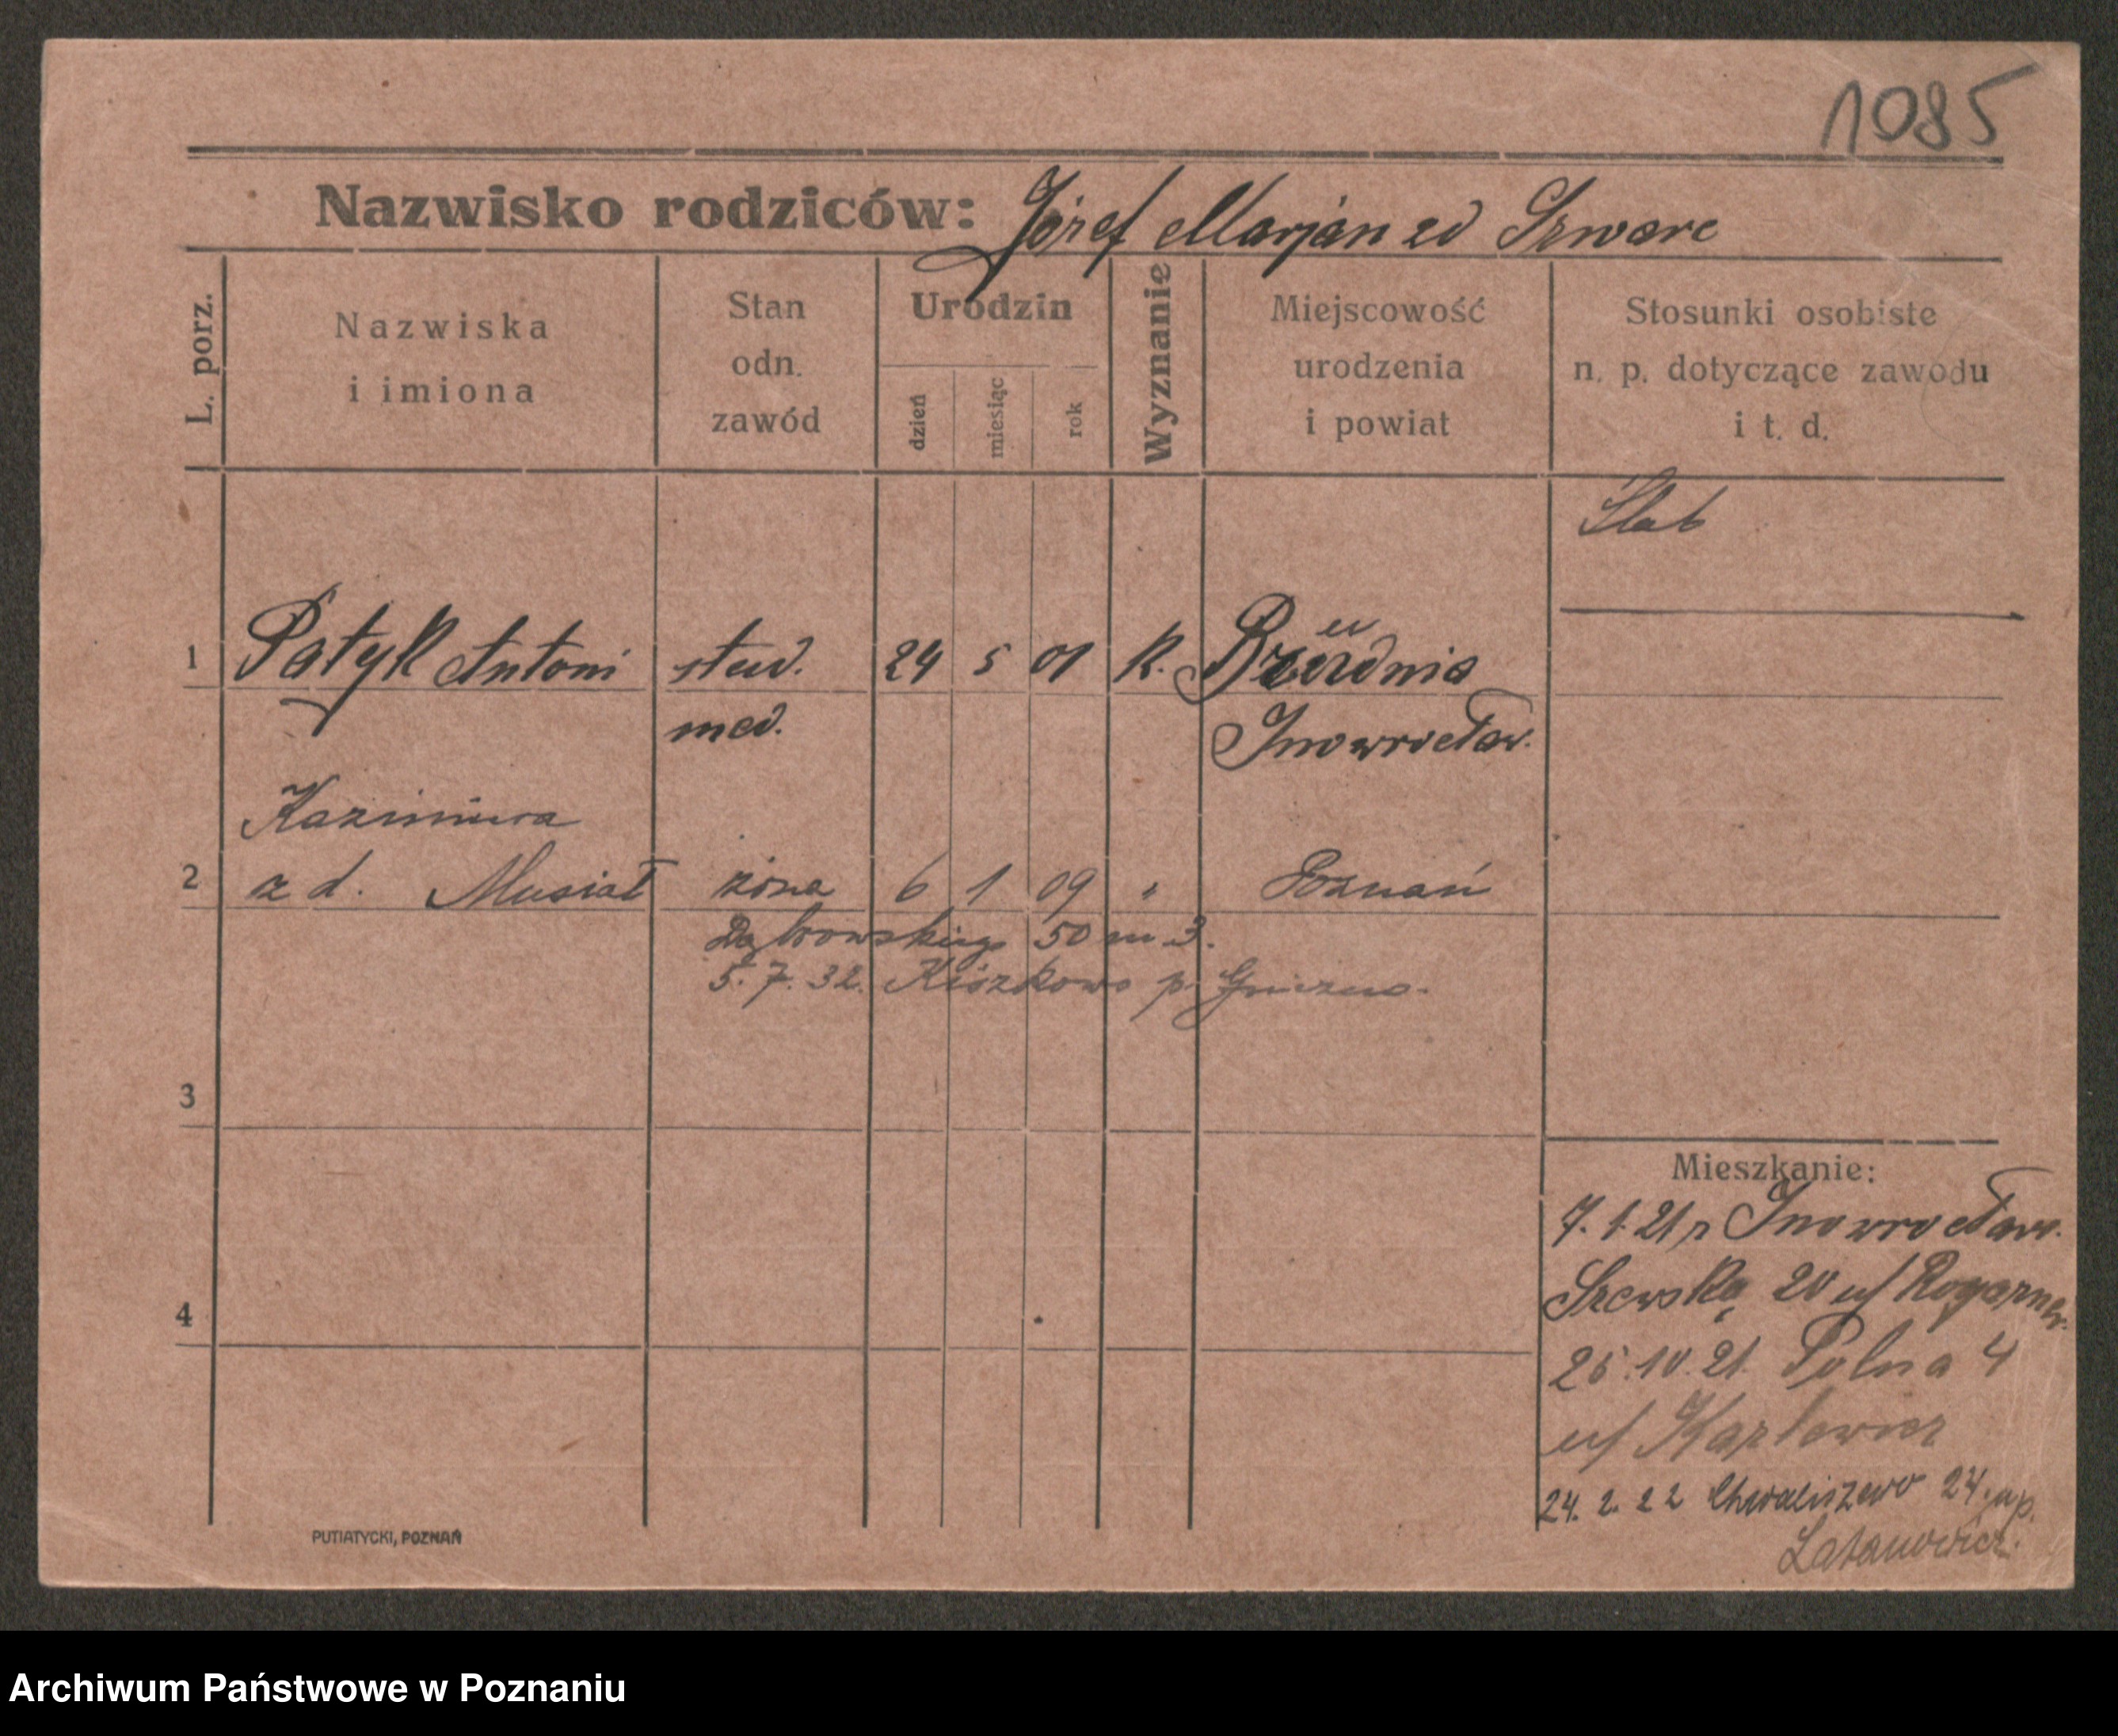 1085
Nazwisko rodziców: Józef Marjan zd Szwarc
L. porz.
Nazwiska
i imiona
Stan
odn.
zawód
Urodzin
dzień
miesiąc
rok
Wyznanie
Miejscowość
urodzenia
i powiat
Stosunki osobiste
n. p. dotyczące zawodu
i t. d.
Ślub
1 Patyk Antoni stud. 24 5 01 k.
med. Inowrocław.
Kazimiera
2 z d. Musiał żona 6 1 09 " Poznań
Dąbrowskiego 50 m 3.
5.7.32. Kiszkowo p. Gniezno.
3
Mieszkanie:
7.1.21 z Inowrocław.
Szewska 20 u/
4
25.10.21. Polna 4
u/ Karlewicz
24.2.22 Chwaliszewo 24. u p.
Latanowicz.
PUTIATYCKI, POZNAŃ
Archiwum Państwowe w Poznaniu